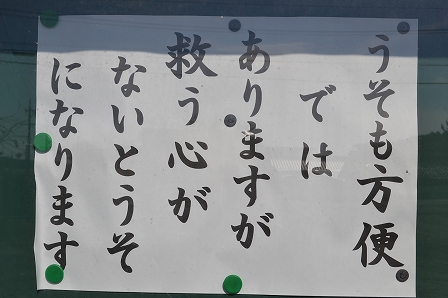 うそも方便
では
ありますが
救う心が
ないとうそ
になります